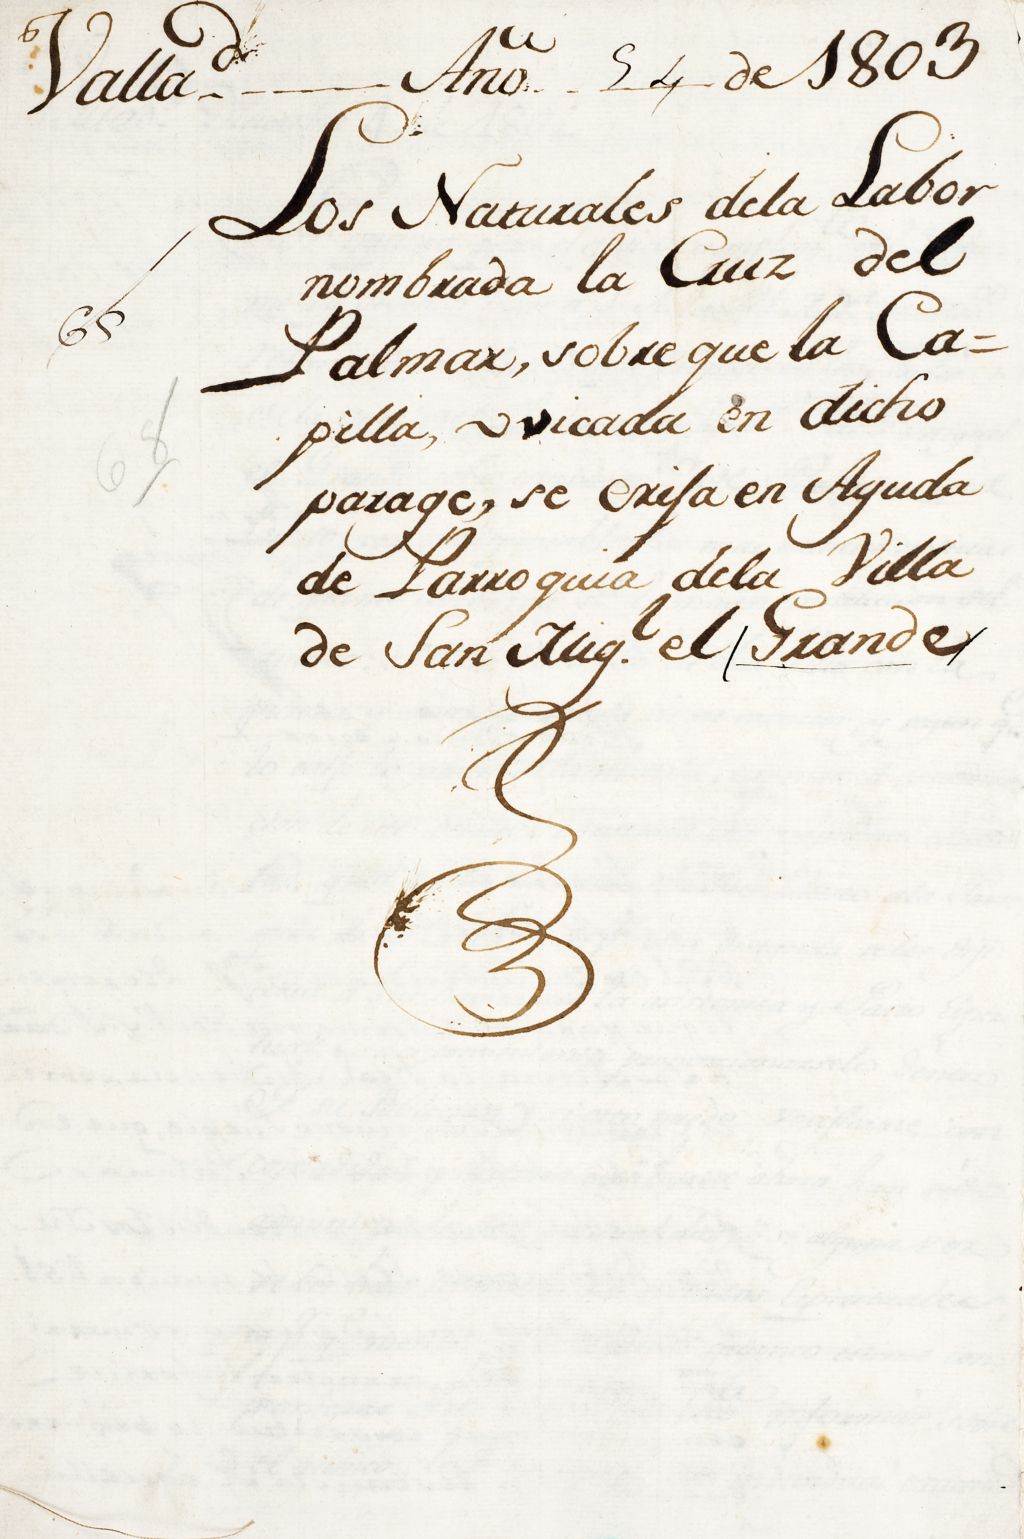 Vallad. Año. 54 de 1803
Los Naturales dela Labor
nombrada la Cruz del
Palmar, sobre que la Ca=
pilla, vvicada en dicho
65
parage, se erija en Ayuda
68
de Parroquia dela Villa
de San Migl. el (Grande)